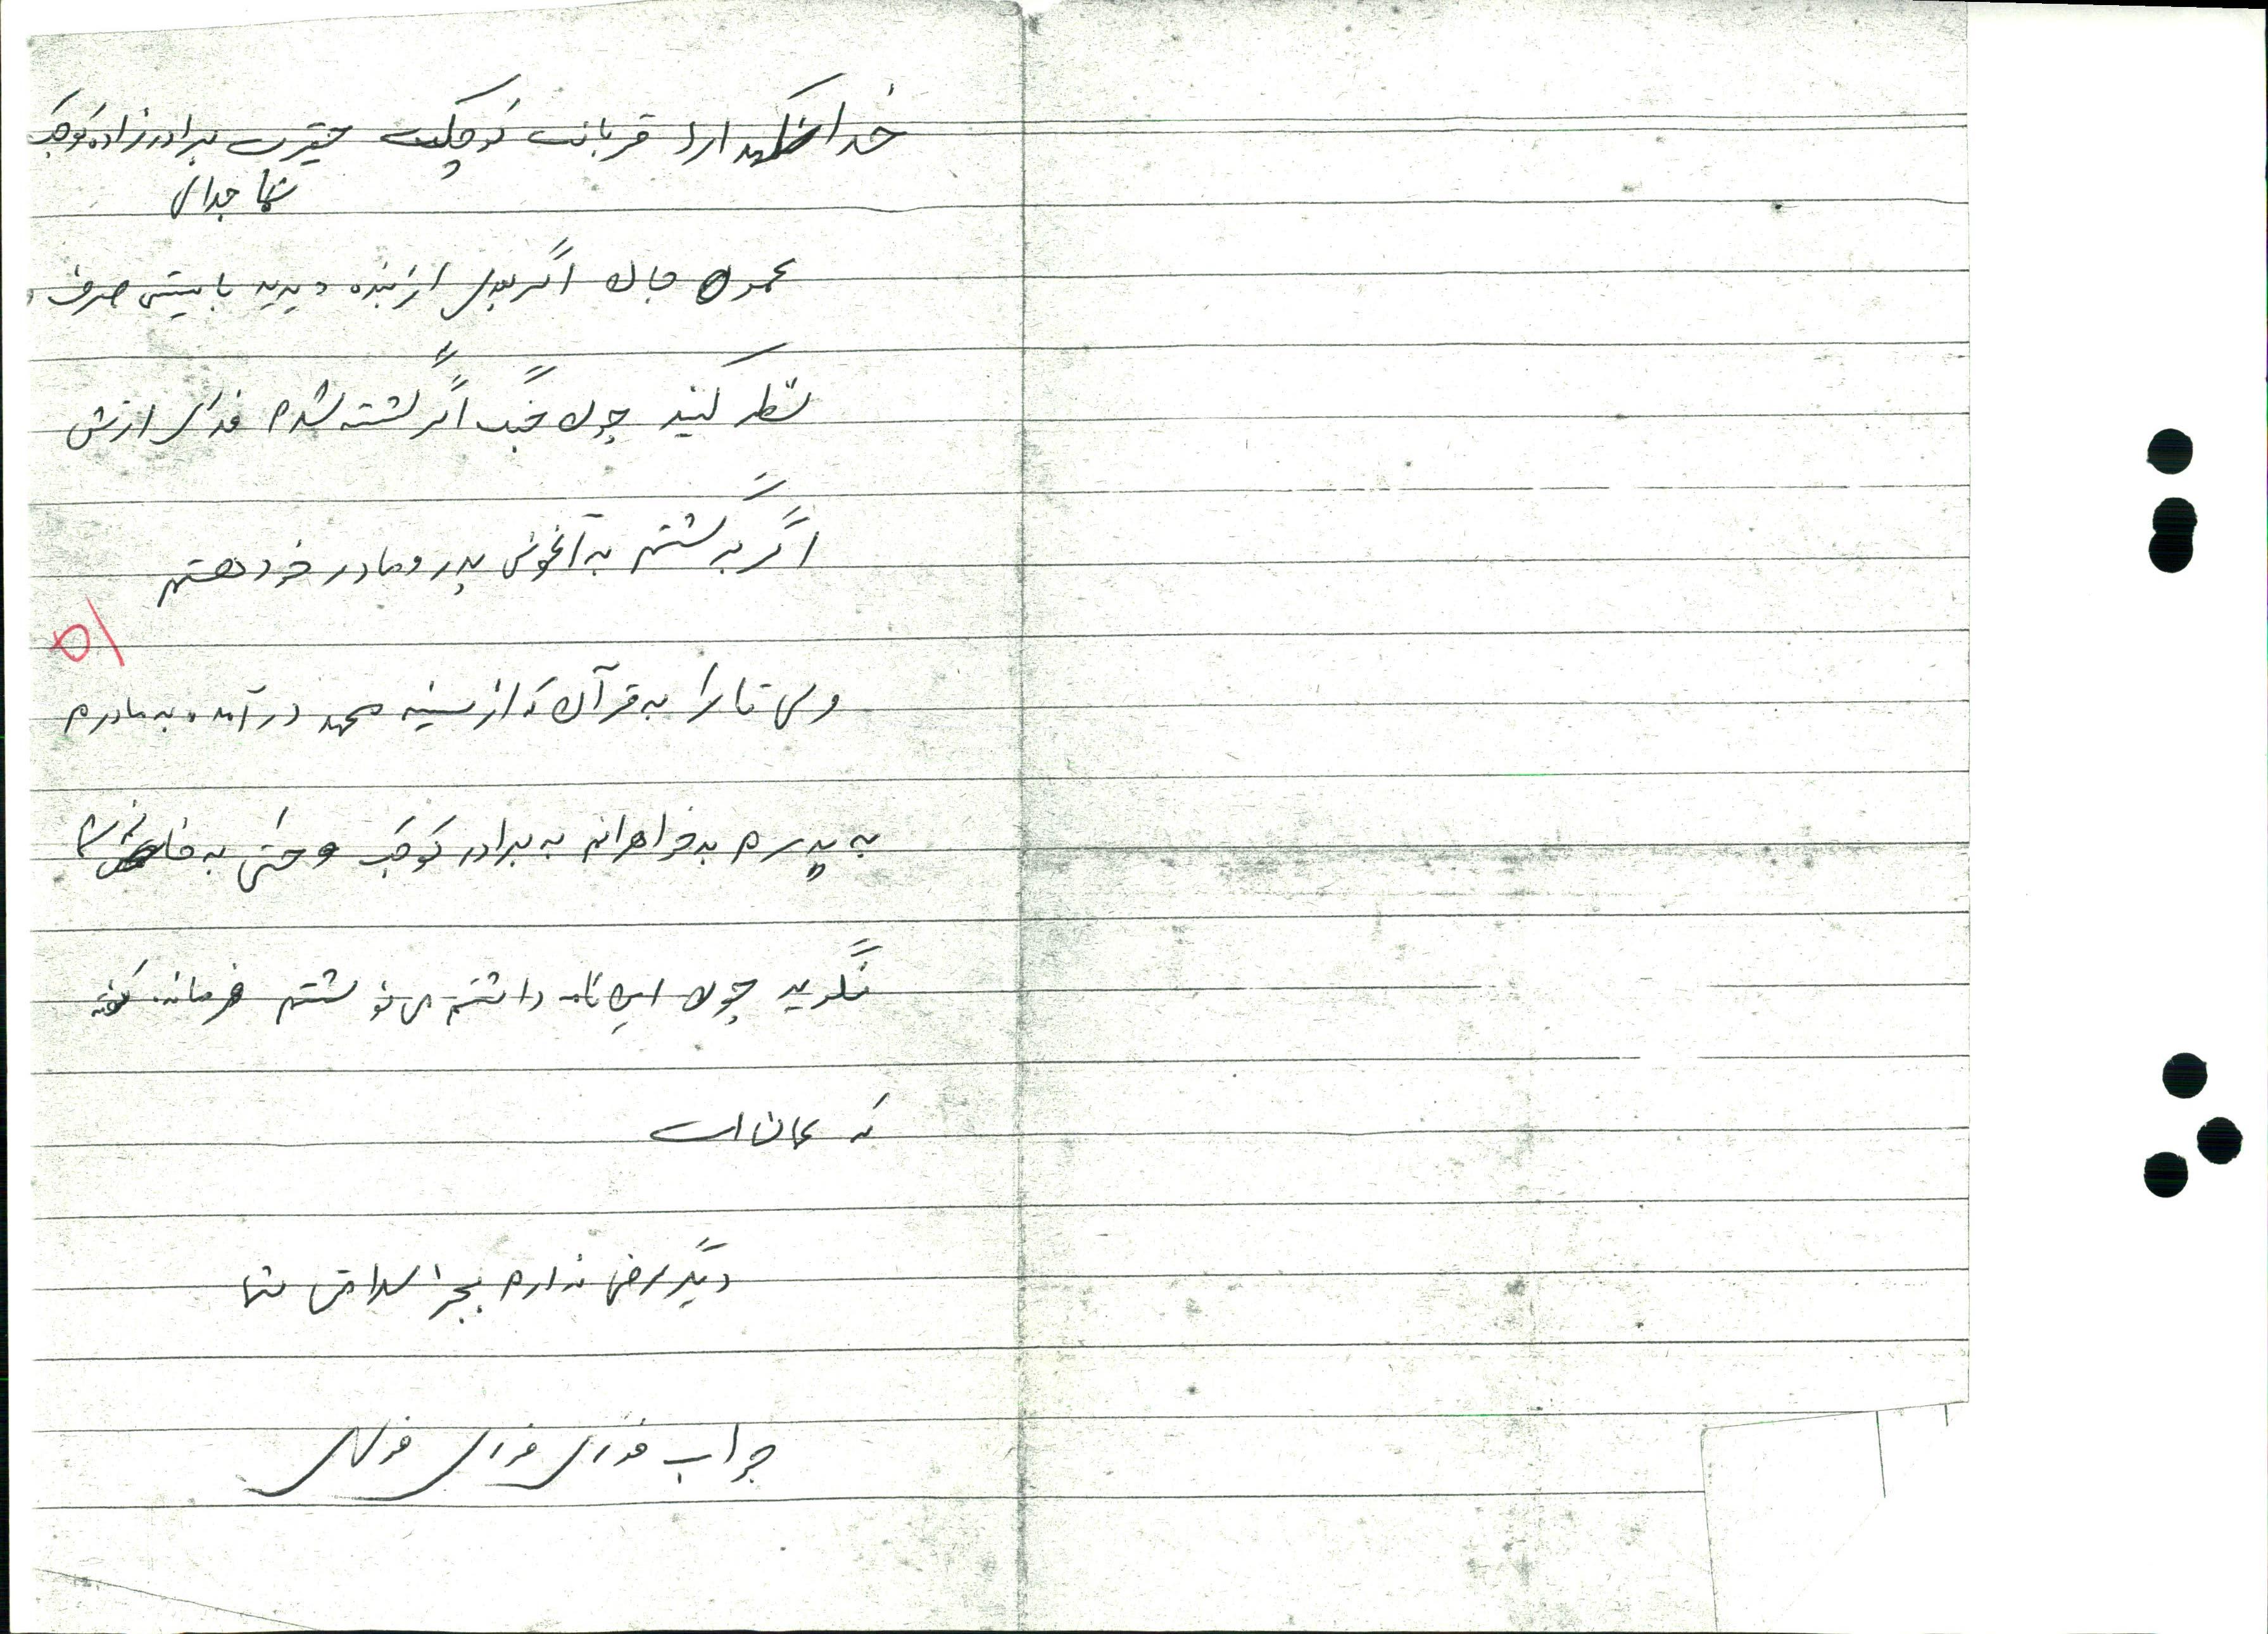 خدانگهدار قربانت کوچکت حقیرت برادرزاده کوچک
شما جدای
عموی جان اگر بدی از بنده دیدید بایستی صرف
نظر کنید چون جنگ اگر کشته شدم فدای ارتش
اگر برگشتم به آغوش پدر و مادر خود هستم
۵۱
ولی تا را به قرآن که از سینه محمد در آمده به مادرم
به پدرم به خواهرانم به برادر کوچک و حتی به
نگوید چون این نامه داشتم می نوشتم فرمانده گفته
که است
دیگر عرضی ندارم بجز سلامتی شما
جواب فوری فوری فوری